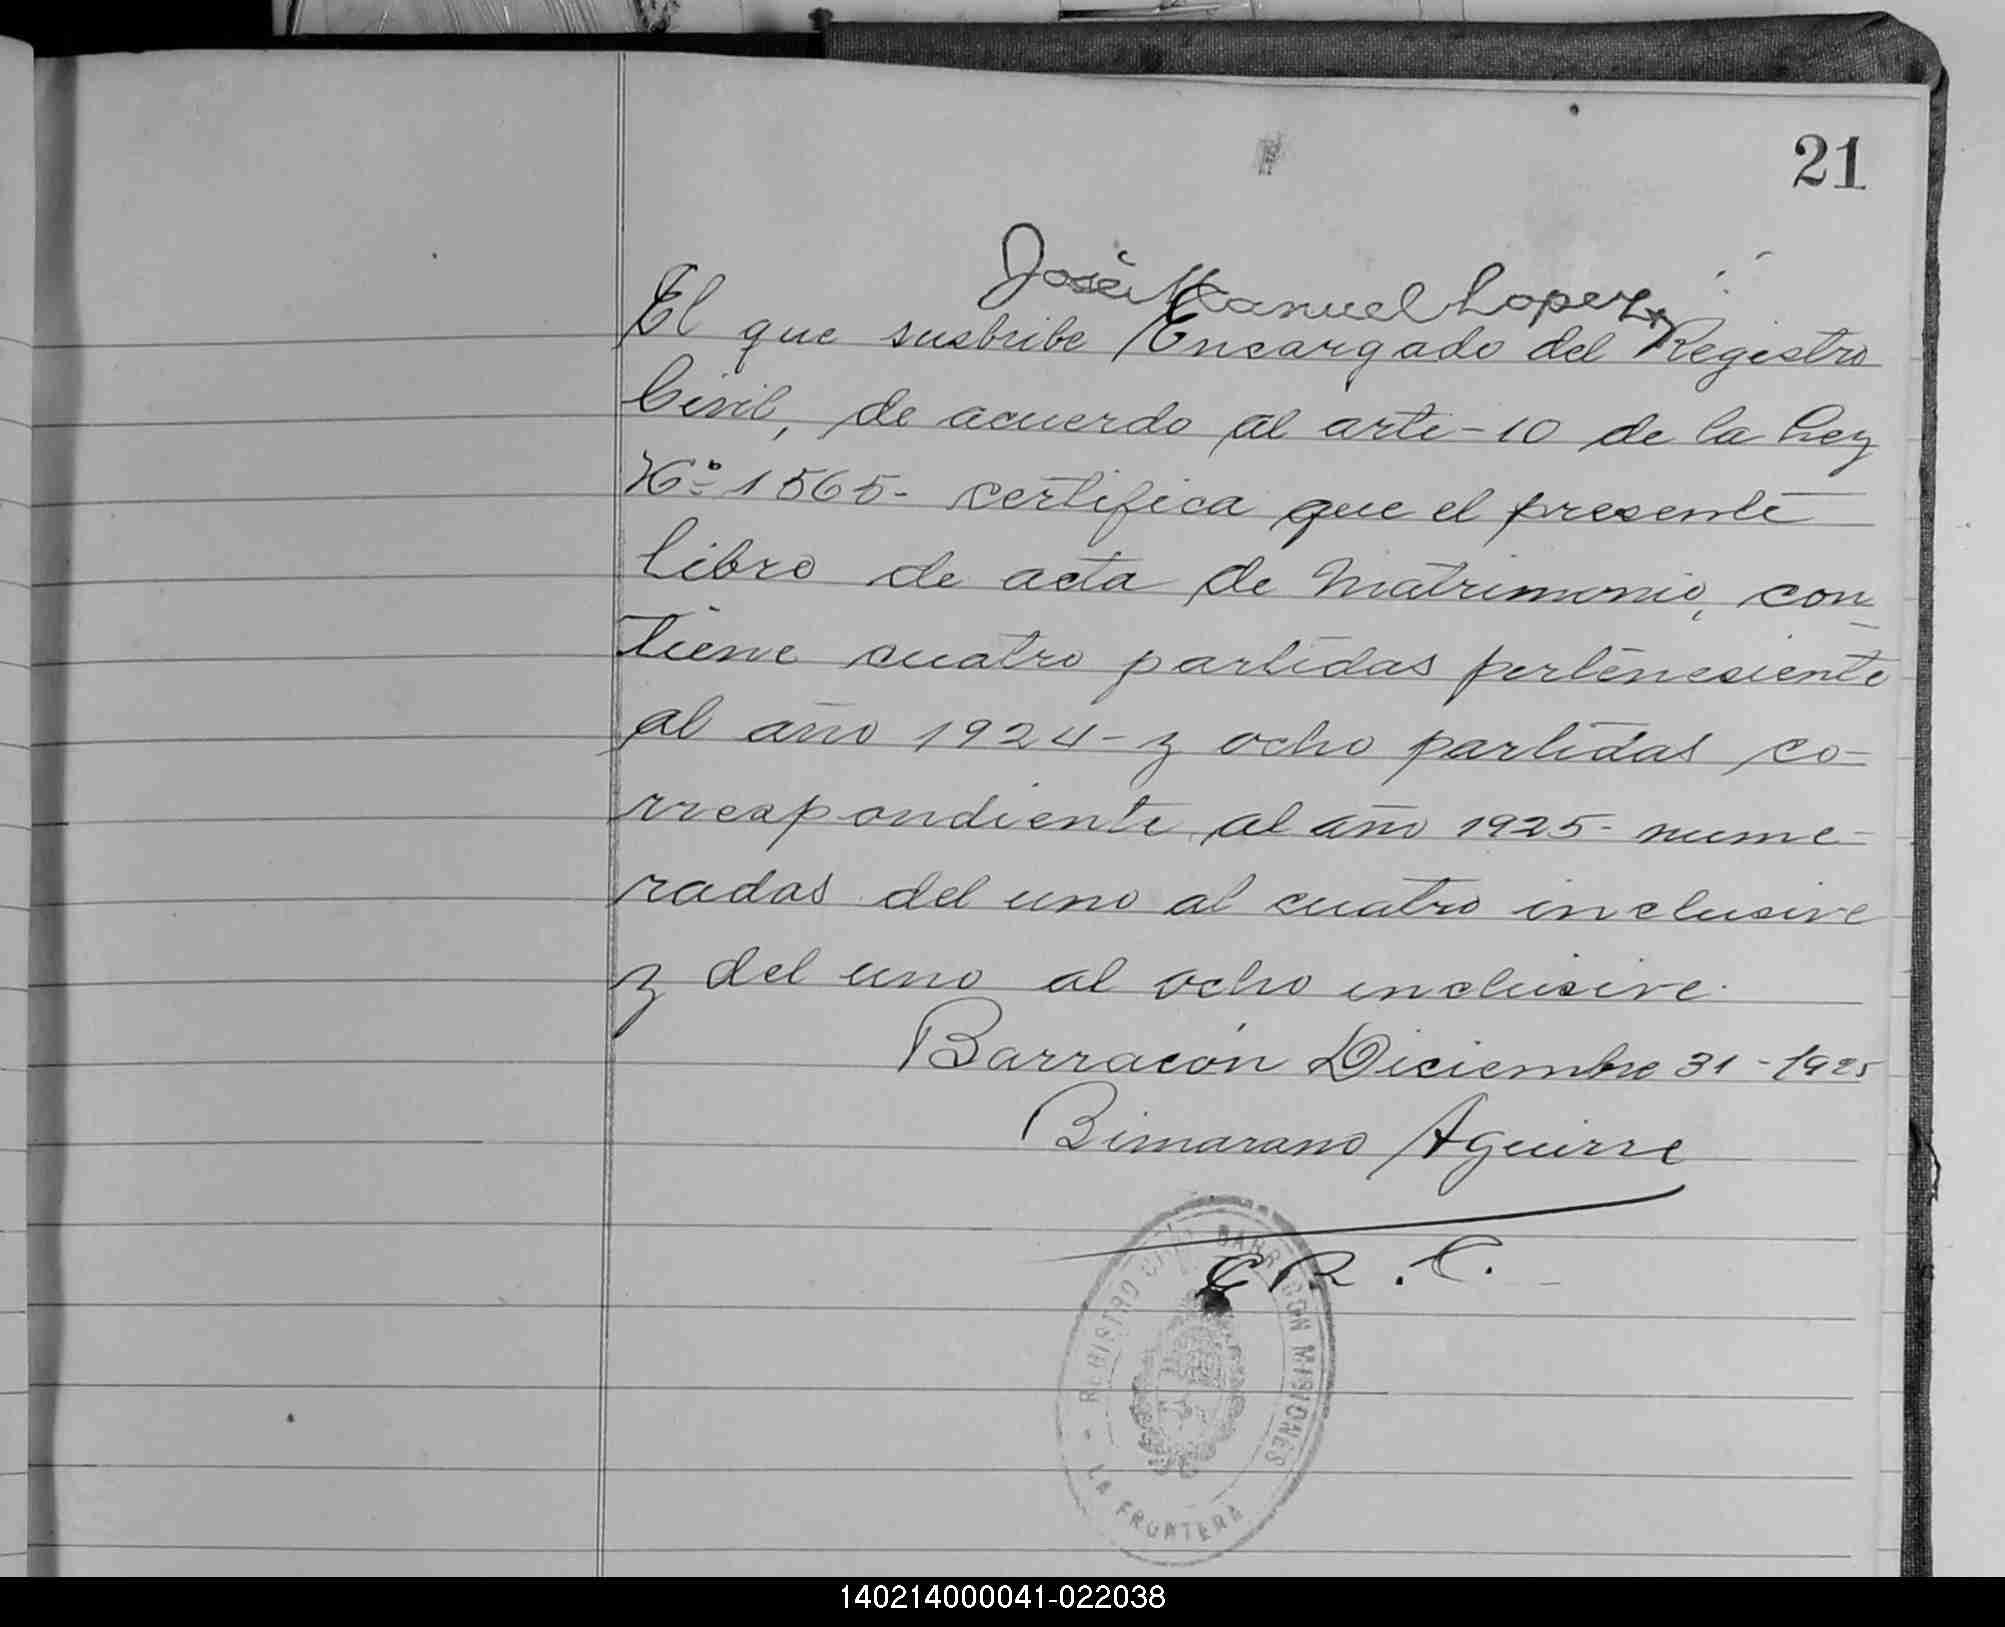 21
José Manuel Lopez
El que suskribe Encargado del Registro
Civil, de acuerdo al arte-10 de la Ley
Nº 1565- certifica que el presente
libro de acta de Matrimonio, con
tiene cuatro partidas pertenesiente
al año 1924- y ocho partidas co-
rrespondiente al año 1925- nume-
radas del uno al cuatro inclusive
y del uno al ocho inclusive.
Barracón Diciembre 31-1925
Bimarano Aguirre
E R. C.
REGISTRO CIVIL BARRACON MISIONES
LA FRONTERA
140214000041-022038